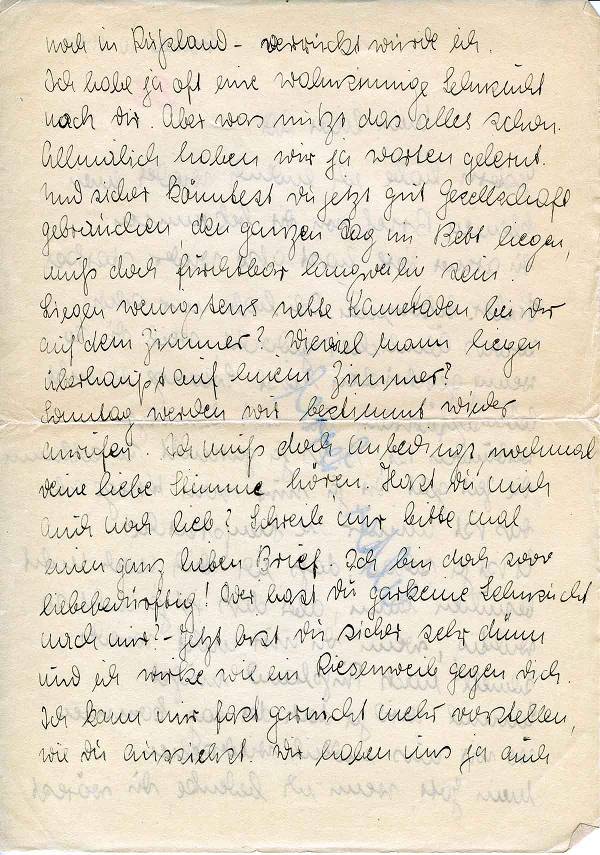 noch in Rußland - verrückt würde ich.
Ich habe ja oft eine wahnsinnige Sehnsucht
nach dir. Aber was nützt das alles schon.
Allmälich haben wir ja warten gelernt.
Und sicher könntest du jetzt gut Gesellschaft
gebrauchen den ganzen Tag im Bett liegen,
muß doch furchtbar langweilig sein.
Liegen wenigstens nette Kameraden bei dir
auf dem Zimmer? Wieviel Mann liegen
überhaupt auf einem Zimmer?
Sonntag werden wir bestimmt wieder
anrufen. Ich muß doch unbedingt nochmal
deine liebe Stimme hören. Hast du mich
auch noch lieb? Schreibe mir bitte mal
einen ganz lieben Brief. Ich bin doch soo
liebebedürftig! Oder hast du garkeine Sehnsucht
nach mir? - Jetzt bist du sicher sehr dünn
und ich wirke wie ein Riesenweib gegen dich.
Ich kann mir fast garnicht mehr vorstellen,
wie du aussiehst. Wir haben uns ja auch